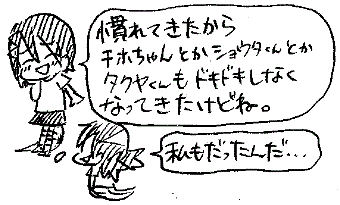 慣れてきたから
チホちゃんとかショウタくんとか
タクヤくんもドキドキしなく
なってきたけどね。
私もだったんだ…